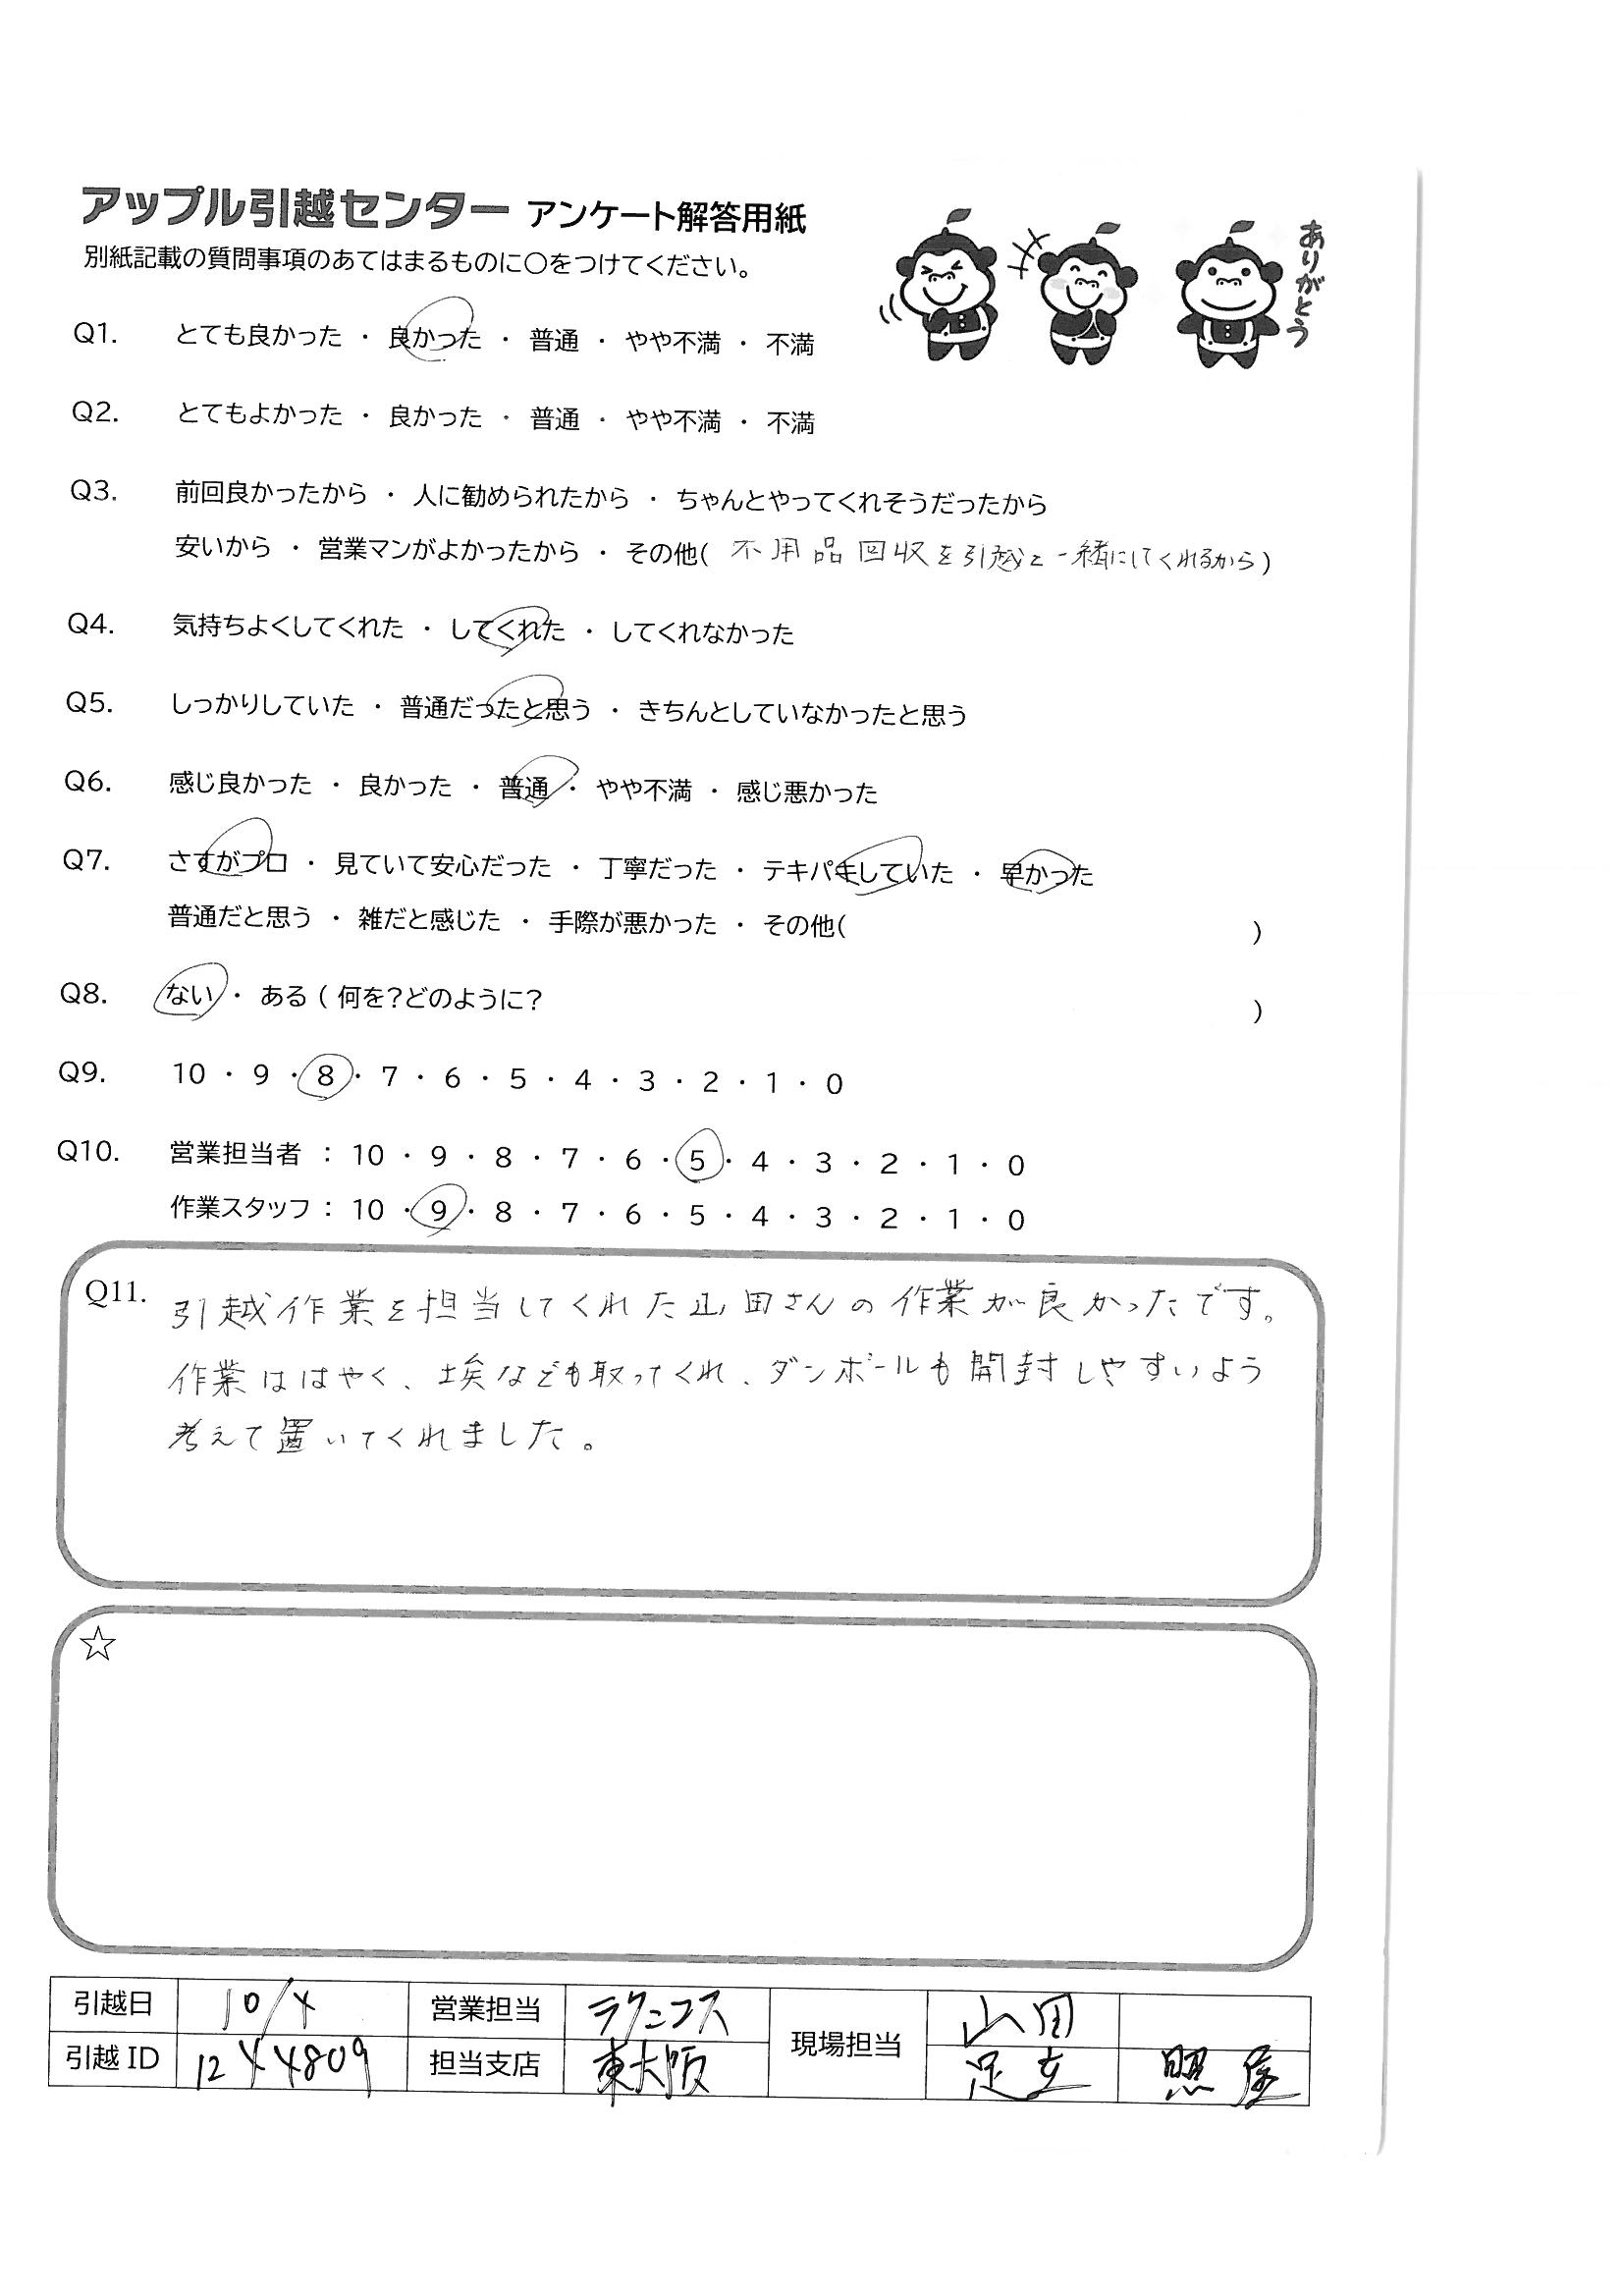 アップル引越センター アンケート解答用紙
別紙記載の質問事項のあてはまるものに〇をつけてください。
ありがとう
Q1. とても良かった ・ 良かった ・ 普通 ・ やや不満 ・ 不満
Q2. とてもよかった ・ 良かった ・ 普通 ・ やや不満 ・ 不満
Q3. 前回良かったから ・ 人に勧められたから ・ ちゃんとやってくれそうだったから
安いから ・ 営業マンがよかったから ・ その他( 不用品回収を引越と一緒にしてくれるから )
Q4. 気持ちよくしてくれた ・ してくれた ・ してくれなかった
Q5. しっかりしていた ・ 普通だったと思う ・ きちんとしていなかったと思う
Q6. 感じ良かった ・ 良かった ・ 普通 ・ やや不満 ・ 感じ悪かった
Q7. さすがプロ ・ 見ていて安心だった ・ 丁寧だった ・ テキパキしていた ・ 早かった
普通だと思う ・ 雑だと感じた ・ 手際が悪かった ・ その他( )
Q8. ない ・ ある ( 何を?どのように? )
Q9. 10 ・ 9 ・ 8 ・ 7 ・ 6 ・ 5 ・ 4 ・ 3 ・ 2 ・ 1 ・ 0
Q10. 営業担当者 : 10 ・ 9 ・ 8 ・ 7 ・ 6 ・ 5 ・ 4 ・ 3 ・ 2 ・ 1 ・ 0
作業スタッフ : 10 ・ 9 ・ 8 ・ 7 ・ 6 ・ 5 ・ 4 ・ 3 ・ 2 ・ 1 ・ 0
Q11. 引越作業を担当してくれた山田さんの作業が良かったです。
作業ははやく、埃なども取ってくれ、ダンボールも開封しやすいよう
考えて置いてくれました。
☆
引越日 10/4 営業担当 ラクニコス 現場担当 山田
引越 ID 1244809 担当支店 東大阪 足立 照屋